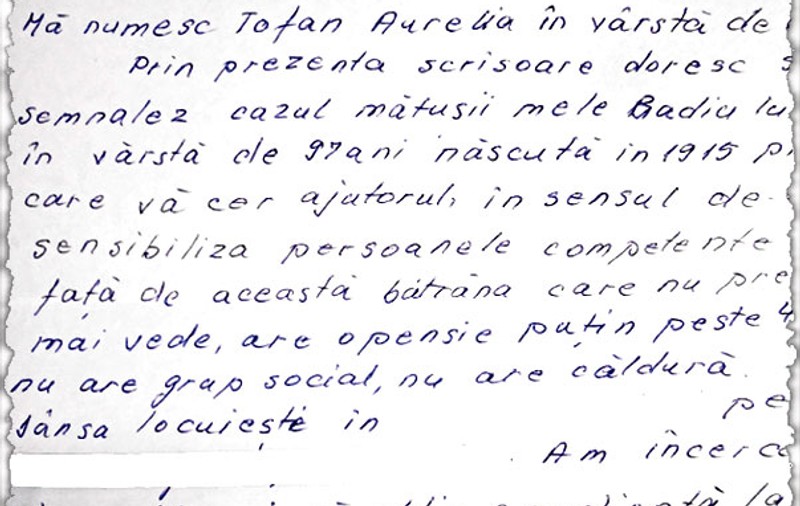 Mă numesc Tofan Aurelia în vârstă de
Prin prezenta scrisoare doresc s
semnalez cazul mătușii mele Badiu lu
în vârstă de 97 ani născută in 1915 p
care vă cer ajutorul, in sensul de
sensibiliza persoanele competente
față de această bătrâna care nu pre
mai vede, are o pensie puțin peste 4
nu are grup social, nu are căldură.
pe
dânsa locuiește in
Am încerc